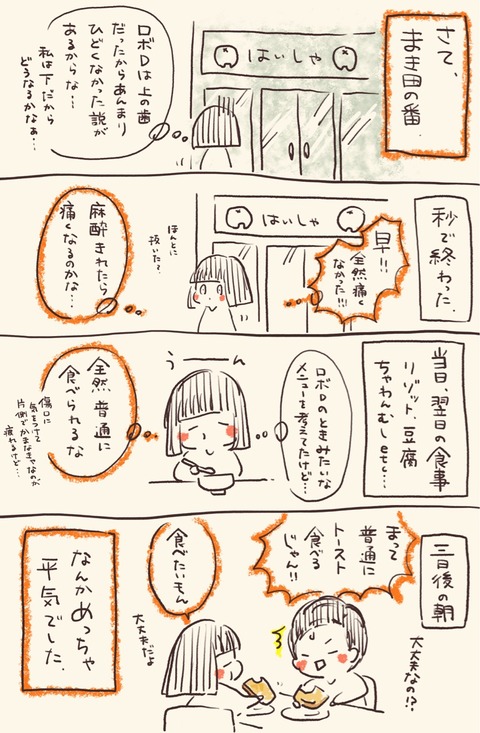 さて、
まき田の番
はいしゃ
ロボDは上の歯
だったからあんまり
ひどくなかった説が
あるからな…
私は下だから
どうなるかなぁ…
秒で終わった
はいしゃ
早!!
全然痛く
なかった!!!
ほんとに
抜いた?
麻酔きれたら
痛くなるのかな…
当日、翌日の食事
リゾット、豆腐
ちゃわんむしetc…
ロボDのときみたいな
メニューを考えてたけど…
うーーん
全然普通に
食べられるな
傷口に
気をつけて
片側でかまなきゃなのが
疲れるけど…
三日後の朝
大丈夫なの!?
まって
普通に
トースト
食べる
じゃん!!
食べたいもん
大丈夫だよ
なんかめっちゃ
平気でした